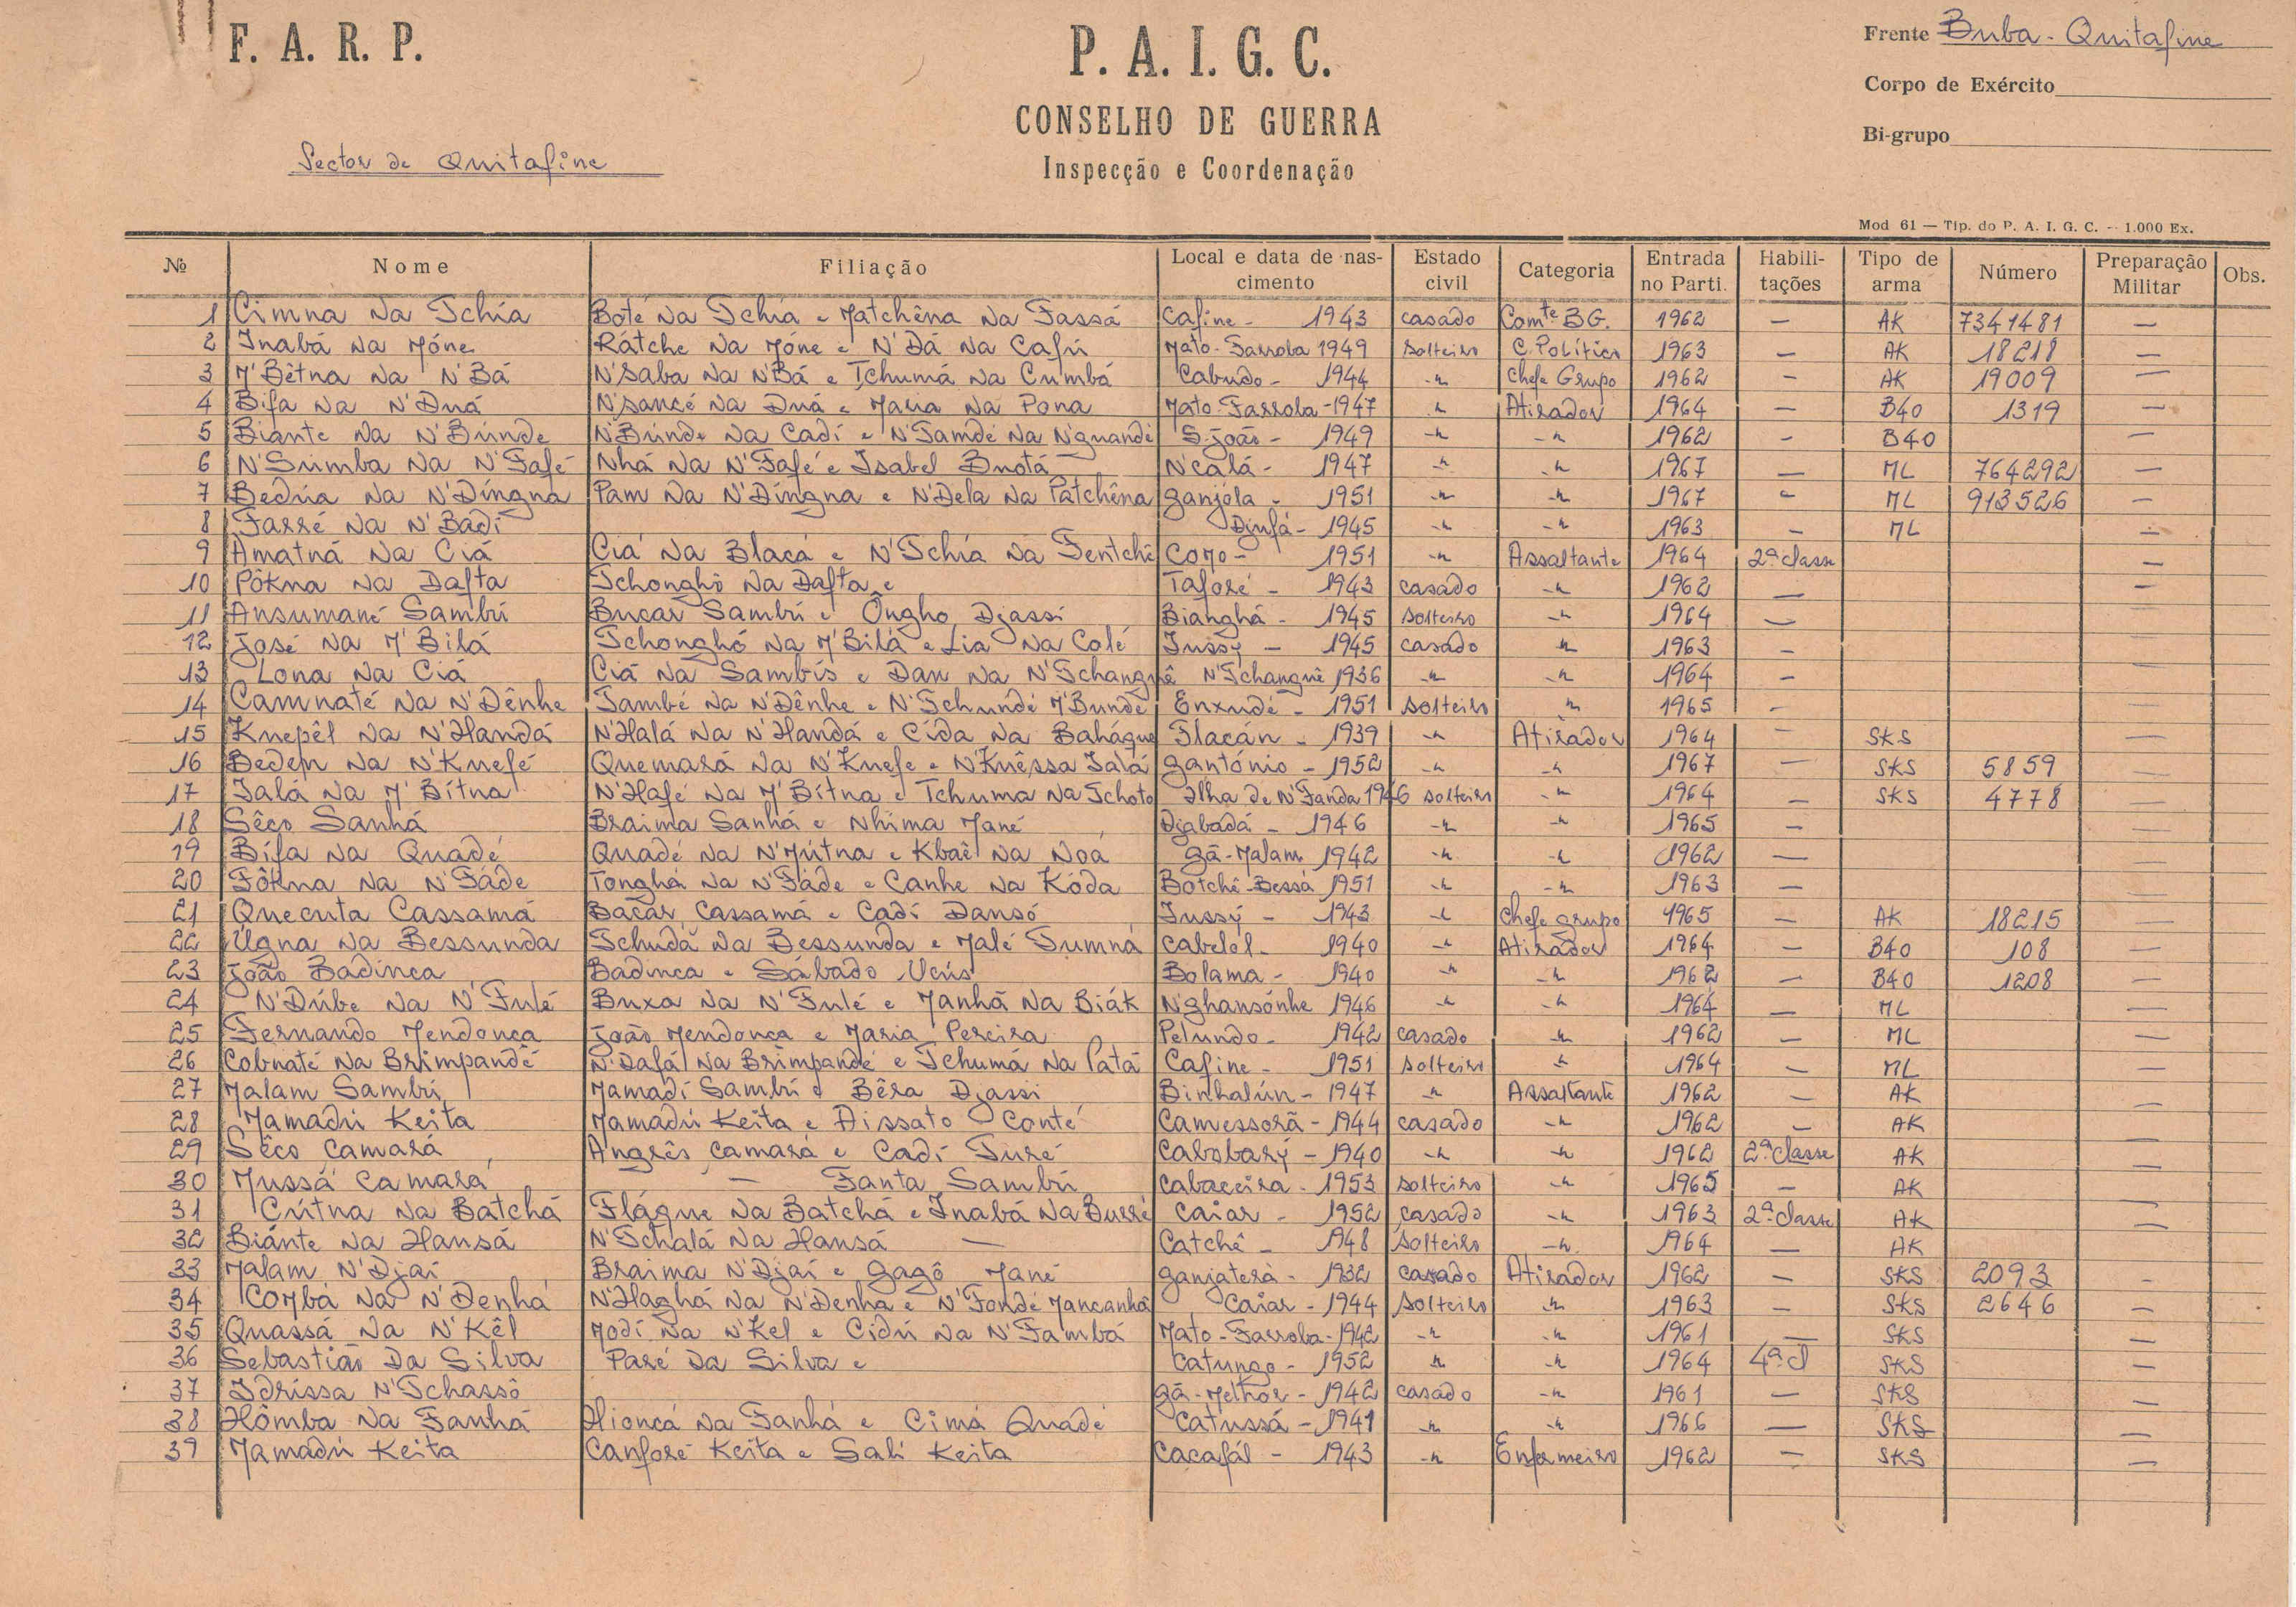 F. A. R. P.
P. A. I. G. C.
CONSELHO DE GUERRA
Inspecção e Coordenação
Frente Buba - Quitafine
Corpo de Exército
Bi-grupo
Sector de Quitafine
Mod 61 — Tip. do P. A. I. G. C. -- 1.000 Ex.
№ Nome Filiação Local e data de nas-cimento Estado civil Categoria Entrada no Parti. Habili-tações Tipo de arma Número Preparação Militar Obs.
1 Cimna Na Tchia Boté Na Tchiá e Matchêna Na Fassá Cafine - 1943 casado Comte BG. 1962 — AK 7341481 —
2 Inabá Na Móne Rátche Na Móne e N'Dá Na Cafú Mato-Farroba 1949 solteiro C. Político 1963 — AK 18218 —
3 M'Bêtna Na N'Bá N'Saba Na N'Bá e Tchumá Na Cumbá Cabudo - 1944 -"- Chefe Grupo 1962 — AK 19009 —
4 Bifa Na N'Duá N'sancé Na Duá e Maria Na Pona Mato-Farroba - 1947 -"- Atirador 1964 — B40 1319 —
5 Biante Na N'Búnde N'Búnde Na Cadí e N'Tamdé Na N'guandé S. João - 1949 -"- -"- 1962 - B40 —
6 N'Súmba Na N'Fafé Nhá Na N'Fafé e Isabel Buotá N'calá - 1947 -"- -"- 1967 — ML 764292 —
7 Bedúa Na N'Díngna Pam Na N'Díngna e N'Dela Na Patchêna Ganjola - 1951 -"- -"- 1967 - ML 913526 —
8 Farré Na N'Badí Djufá - 1945 -"- -"- 1963 — ML —
9 Amatná Na Ciá Ciá Na Blacá e N'Tchía Na Tentchê Como - 1951 -"- Assaltante 1964 2ª classe —
10 Pôkna Na Dafta Tchonghô Na Dafta e Taforé - 1943 casado -"- 1962 — —
11 Ansumané Sambú Bucar Sambú e Ôngho Djassí Bianghá - 1945 solteiro -"- 1964 — —
12 José Na M'Bilá Tchonghó Na M'Bilá e Lia Na Colé Iussy — 1945 casado -"- 1963 — —
13 Lona Na Ciá Ciá Na Sambís e Dan Na N'Tchanguê N'Tchanguê 1936 -"- -"- 1964 — —
14 Camnaté Na N'Dênhe També Na N'Dênhe e N'Tchundé M'Bundé Enxudé - 1951 solteiro -"- 1965 - —
15 Knepêl Na N'Handá N'Halá Na N'Handá e Cída Na Bahágue Flacán - 1939 -"- Atirador 1964 — SKS —
16 Bedem Na N'Knefé Quemará Na N'Knefe e N'Knêssa Ialá Gantónio - 1952 -"- -"- 1967 — SKS 5859 —
17 Ialá Na M'Bítna N'Hafé Na M'Bítna e Tchuma Na Tchoto Ilha de N'Fanda 1946 solteiro -"- 1964 — SKS 4778 —
18 Sêco Sanhá Braima Sanhá e Nhima Mané Djabadá - 1946 -"- -"- 1965 — —
19 Bífa Na Quadé Quadé Na N'Mútna e Kbaêl Na Noa Gã-Malam 1942 -"- -"- 1962 — —
20 Fôkna Na N'Fáde Tonghá Na N'Fáde e Canhe Na Kóda Botchê-Bessá 1951 -"- -"- 1963 — —
21 Quecuta Cassamá Bacar Cassamá e Cadí Dansó Iussy - 1943 -"- Chefe grupo 1965 — AK 18215 —
22 Úgna Na Bessunda Tchudá Na Bessunda e Malé Tumná Cabelol - 1940 -"- Atirador 1964 — B40 108 —
23 João Badinca Badinca e Sábado Vcús Bolama - 1940 -"- -"- 1962 — B40 1208 —
24 N'Dúbe Na N'Fulé Buxa Na N'Fulé e Manhã Na Biák N'ghansónhe 1946 -"- -"- 1964 — ML —
25 Fernando Mendonça João Mendonça e Maria Pereira Pelundo - 1942 casado -"- 1962 — ML —
26 Cobnaté Na Brimpandê N'Dafál Na Brimpandé e Tchumá Na Patá Cafine - 1951 solteiro -"- 1964 — ML —
27 Malam Sambú Mamadí Sambú e Bêra Djassi Binhalún - 1947 -"- Assaltante 1962 — AK —
28 Mamadú Keita Mamadú Keita e Aissato Conté Camessorã - 1944 casado -"- 1962 — AK —
29 Sêco Camará Angrês Camará e Cadí Turé Cabobary - 1940 -"- -"- 1962 2ª classe AK —
30 Mussá Camará — Fanta Sambú Cabaceira - 1953 solteiro -"- 1965 — AK —
31 Cútna Na Batchá Flágue Na Batchá e Inabá Na Burré Caiar - 1952 casado -"- 1963 2ª classe AK —
32 Biánte Na Hansá N'Tchalá Na Hansá — Catchê - 1948 solteiro -"- 1964 — AK —
33 Malam N'Djaí Braima N'Djaí e Gagô Mané Ganjaterá - 1932 casado Atirador 1962 — SKS 2093 -
34 Combá Na N'Denhá N'Haghá Na N'Denha e N'Fondé Mancanhã Caiar - 1944 solteiro -"- 1963 — SKS 2646 —
35 Quassá Na N'Kêl Modí Na N'Kel e Cidú Na N'Fambá Mato-Farroba - 1942 -"- -"- 1961 — SKS —
36 Sebastião Da Silva Paré Da Silva e Catungo - 1952 -"- -"- 1964 4ª cl SKS —
37 Idrissa N'Tchassô Gã-Melhor - 1942 casado -"- 1961 — SKS —
38 Hômba Na Fanhá Hioncá Na Fanhá e Cimá Quadé Catussá - 1941 -"- -"- 1966 — SKS —
39 Mamadú Keita Canforé Keita e Sali Keita Cacafál - 1943 -"- Enfermeiro 1962 — SKS —